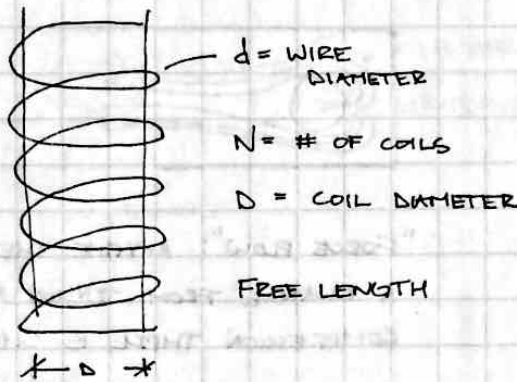 d = WIRE
DIAMETER
N = # OF COILS
D = COIL DIAMETER
FREE LENGTH
D